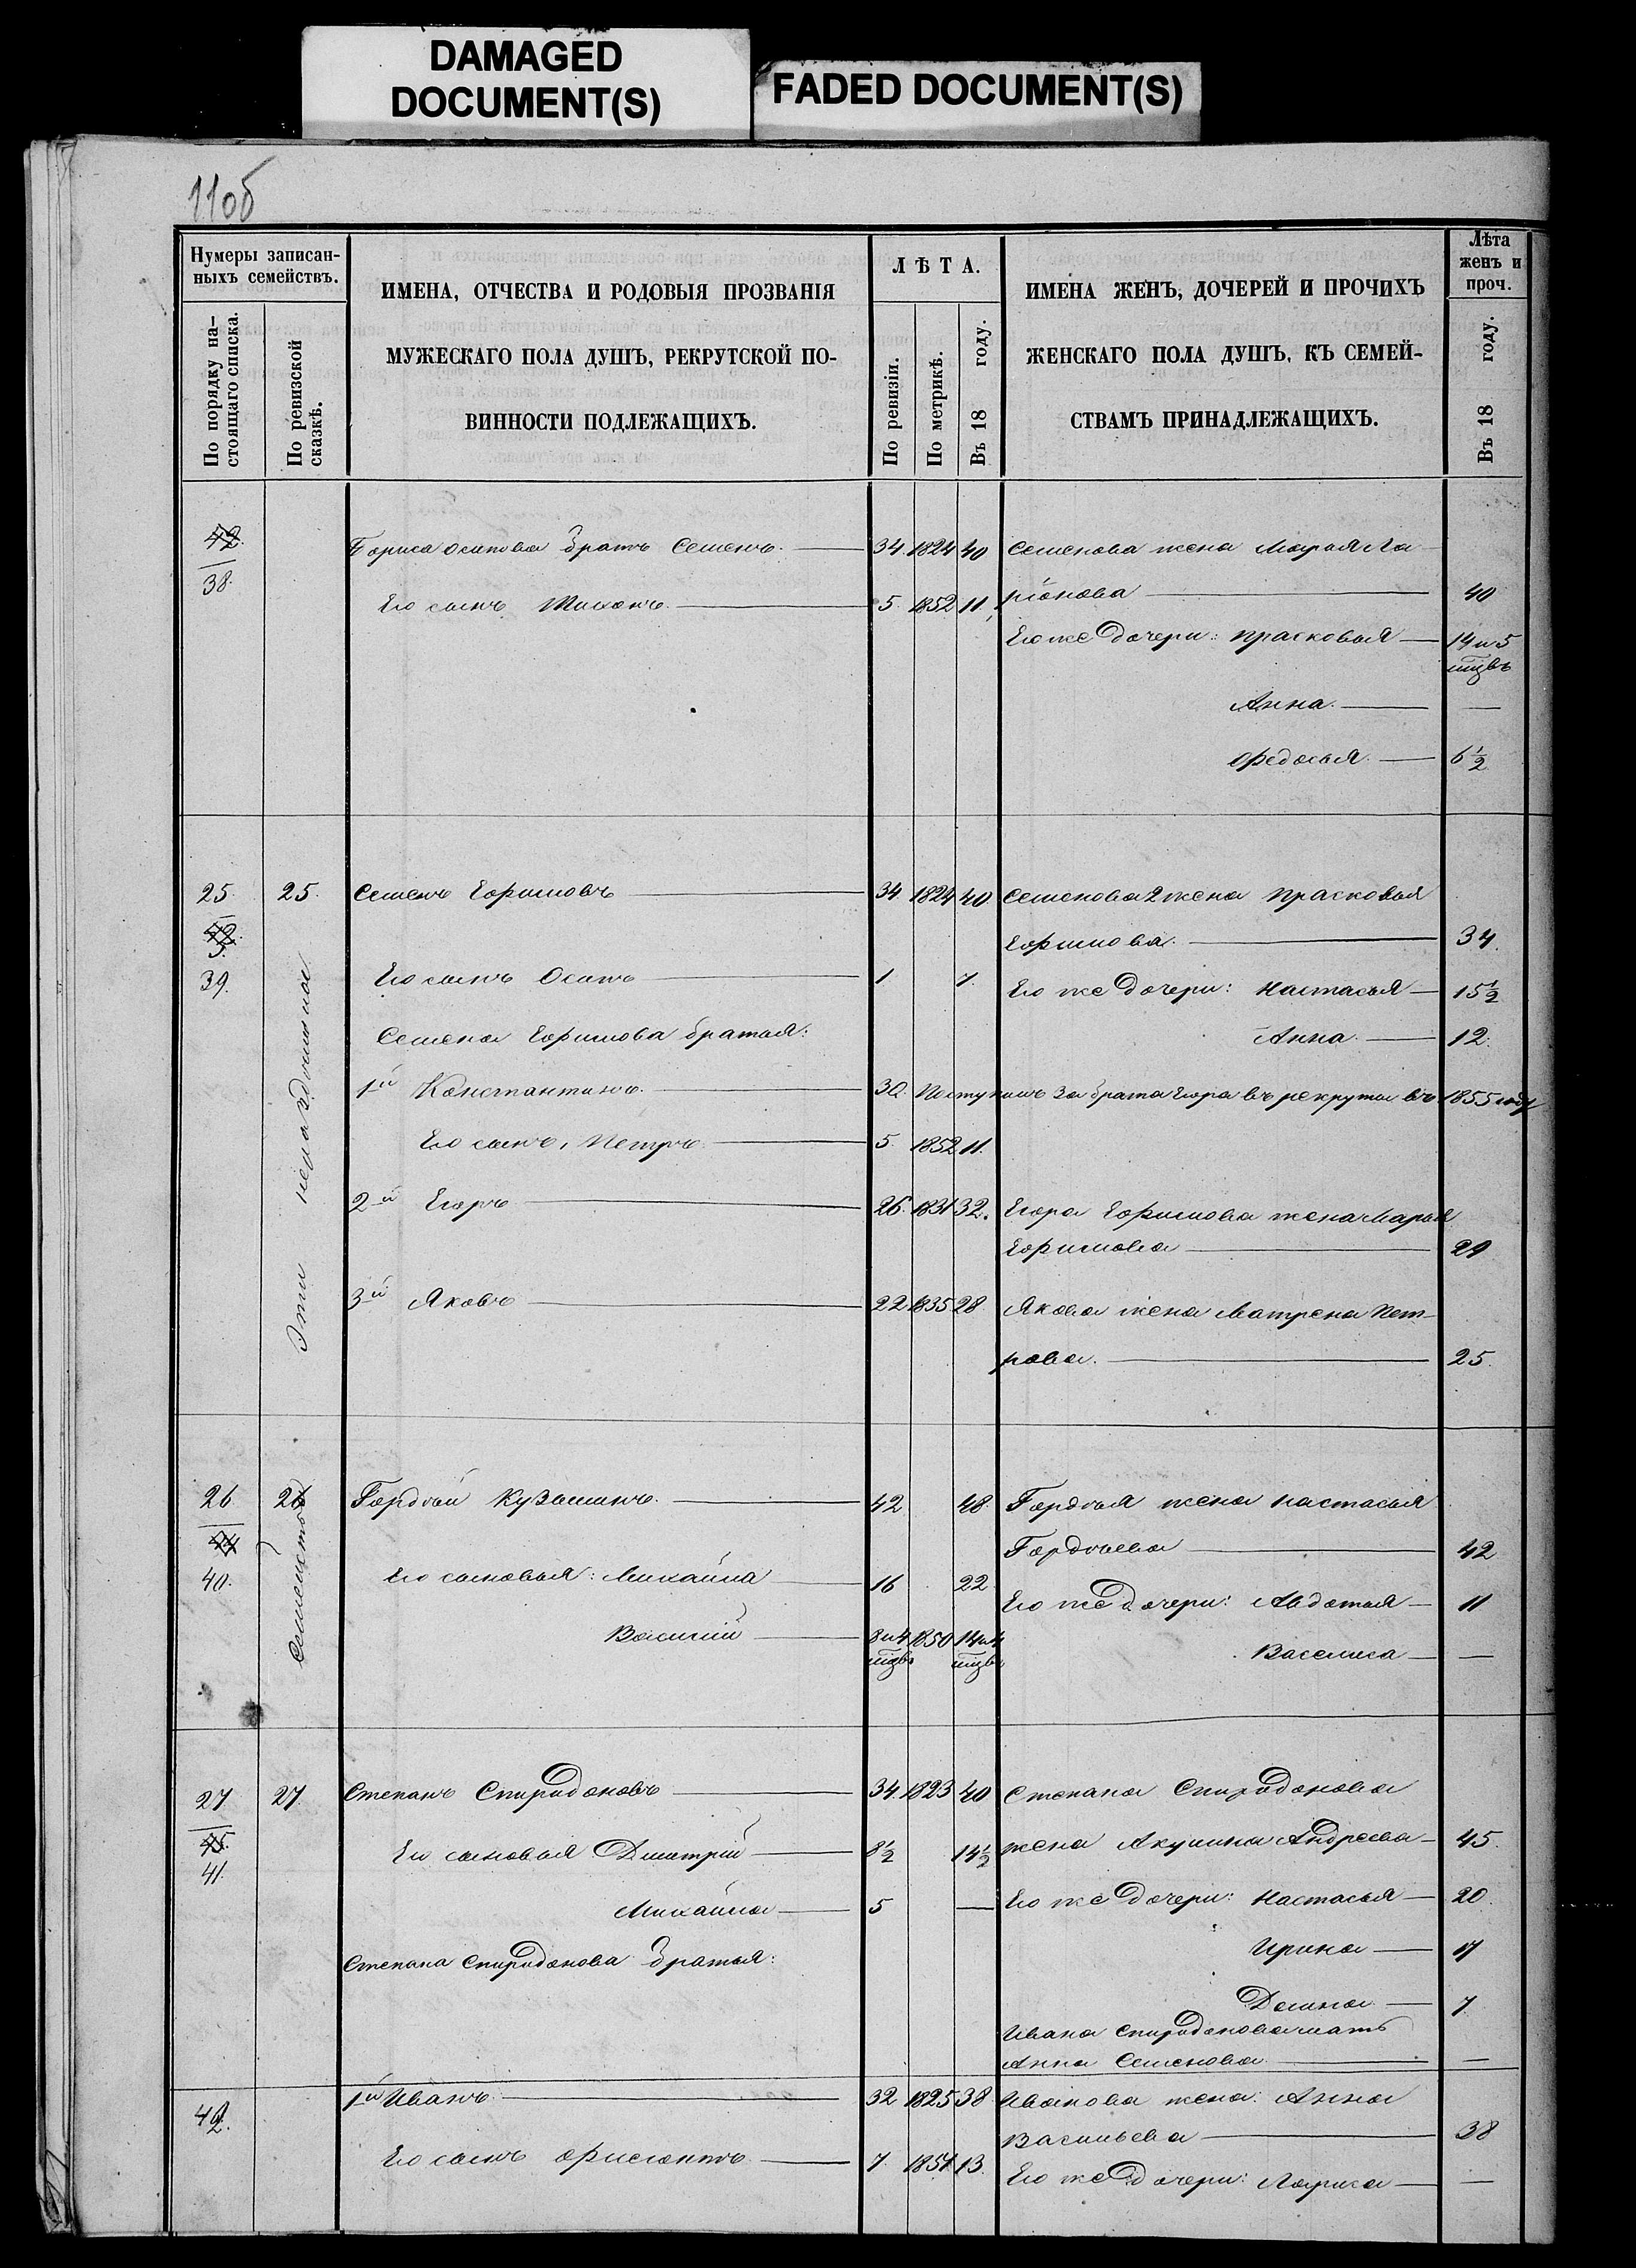 DAMAGED
DOCUMENT(S)
FADED DOCUMENT(S)
110б
Нумеры записан-
ныхъ семействъ.
По порядку на-
стоящаго списка.
По ревизской
сказкѣ.
ИМЕНА, ОТЧЕСТВА И РОДОВЫЯ ПРОЗВАНІЯ
МУЖЕСКАГО ПОЛА ДУШЪ, РЕКРУТСКОЙ ПО-
ВИННОСТИ ПОДЛЕЖАЩИХЪ.
ЛѢТА.
По ревизіи.
По метрикѣ.
Въ 18 году.
ИМЕНА ЖЕНЪ, ДОЧЕРЕЙ И ПРОЧИХЪ
ЖЕНСКАГО ПОЛА ДУШЪ, КЪ СЕМЕЙ-
СТВАМЪ ПРИНАДЛЕЖАЩИХЪ.
Лѣта
женъ и
проч.
Въ 18 году.
Бориса Осипова братъ Семенъ. 34. 1824 40 Семенова жена Марья Ла-
38.
ріонова 40
Его сынъ Тихонъ. 5. 1852 11
Его же дочери: Прасковья 14 и 5
мцвъ
Анна. —
Федосья. 6 1/2
25. 25. Семенъ Ефимовъ 34. 1824 40 Семенова 2 жена Прасковья
Ефимова. 34.
39.
Его сынъ Осипъ 1 7. Его же дочери: Настасья 15 1/2
Семена Ефимова братья: Анна. 12.
1й Константинъ. 30. Поступилъ за брата Егора въ рекруты въ 1855 году
Его сынъ, Петръ 5. 1852 11.
2й Егоръ 26. 1831 32. Егора Ефимова жена Марья
Ефимова 29
3й Яковъ 22 1835 28. Якова жена Матрена Пет-
рова. 25.
Эти нераздельная
семейства
26 26 Гордѣй Кузьминъ. 42 48. Гордѣя жена Настасья
Гордѣева 42
40.
Его сыновья: Михайла 16 22.
Его же дочери: Авдотья 11
Василий 8 и 4 1850 14 и 4
мцвъ мцвъ
Василиса —
27 27. Степанъ Спиридоновъ 34. 1823 40 Степана Спиридонова
45.
жена Акулина Андреева 45.
41.
Его сыновья Дмитрій 8 1/2 14 1/2
Михайла 5 — Его же дочери: Настасья 20
Степана Спиридонова братья: Ирина 17
Домна 7.
Ивана Спиридонова мать
Анна Семенова —
42. 1й Иванъ. 32 1825 38. Иванова жена: Анна
Васильева 38
Его сынъ 7. 1851 13. Его же дочери: Лариса —